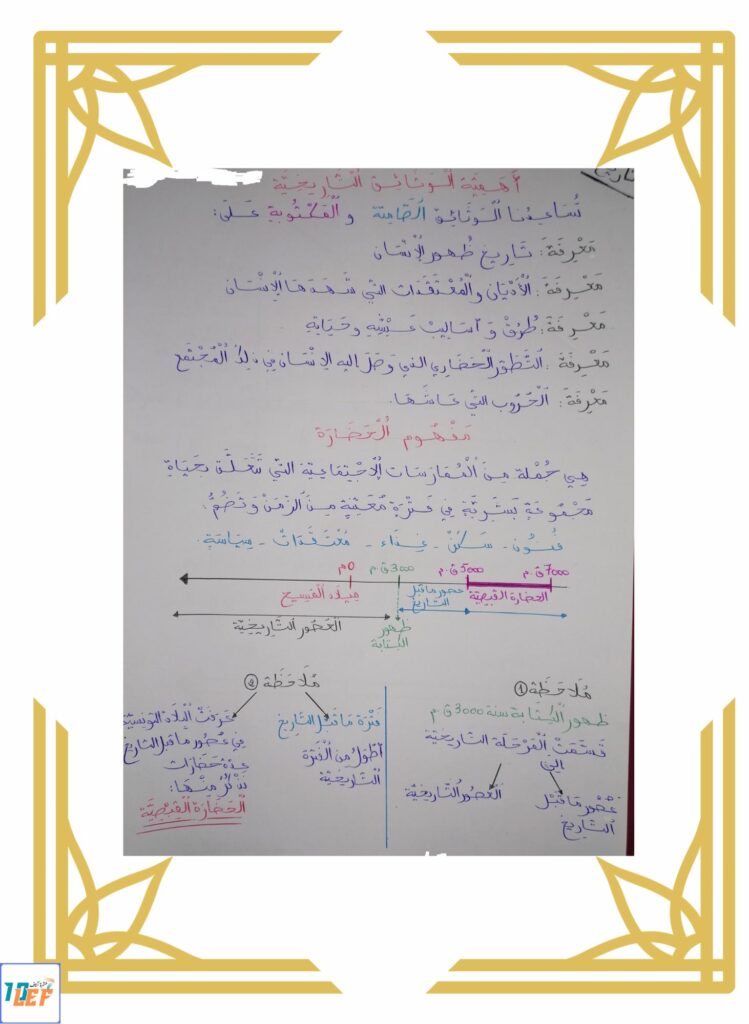 أَهَمِّيَّة الْوَثَائِق التَّارِيخِيَّة
تُسَاعِدُنَا الْوَثَائِقُ الصَّامِتَة وَ الْمَكْتُوبَةِ عَلَى:
مَعْرِفَة: تَارِيخ ظُهُور الْإِنْسَان
مَعْرِفَة: الْأَدْيَان وَالْمُعْتَقَدَات التي شَهَدَهَا الْإِنْسَان
مَعْرِفَة: طُرُقْ وَ أسَالِيبْ عَيْشِهِ وَحَيَاتِهِ
مَعْرِفَة: التَّطَوُّر الْحَضَارِي الذي وَصَلَ إليه الإنْسَان فِي ذَلِكَ الْمُجْتَمَع
مَعْرِفَة: الْحُرُوب التي عَاشَهَا.
مَفْهُوم الْحَضَارَة
هِيَ جُمْلَة مِنَ الْمُمَارَسَات الْاِجْتِمَاعِيَّة التِّي تَتَعَلَّق بِحَيَاةِ
مَجْمُوعَةٍ بَشَرِيَّةٍ فِي فَتْرَةٍ مُعَيَّنَةٍ مِنَ الزَّمَنْ وَتَضُمُّ:
فُنُون - سَكَنْ - غِذَاء - مُعْتَقَدَاتْ - سِيَاسَة.
7000 ق.م
5000 ق.م
3000 ق.م
0 م
الحضارة القبصيّة
عصور ما قبل التّاريخ
ميلاد المسيح
ظهور الكتابة
الْعُصُور التَّارِيخِيَّة
مُلَاحَظَة ①
ظهور الْكِتَابة سنة 3000 ق.م
قَسَّمَتْ الْمَرْحَلَة التَّارِيخِيَّة
إلى
عُصُور مَا قَبْل
التَّارِيخ
الْعُصُور التَّارِيخِيَّة
مُلَاحَظَة ②
فَتْرَة مَا قَبْل التَّارِيخ
أطْوَلُ مِنَ الْفَتْرَة
التَّارِيخِيَّة
عَرَفَتْ الْبِلَاد التونسيّة
فِي عُصُور ما قَبْل التَّارِيخ
عِدّة حَضَارَات
نَذْكُرُ مِنْهَا:
الْحَضَارَة الْقَبْصِيَّة